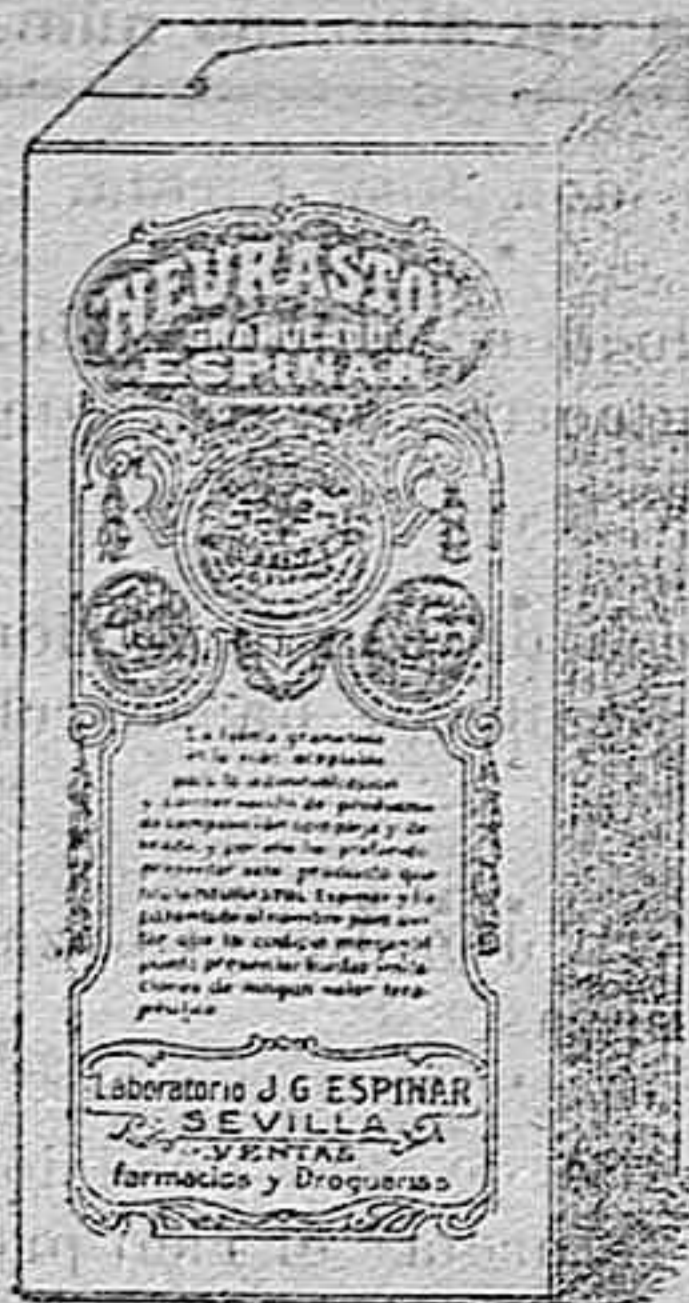 NEURASTOL
GRANULADO
ESPINAR
La forma granulada
es la más aceptable
para la administración
y conservación de productos
de composición compleja y de-
y por eso he preferido
presentar este producto que
Espinar y he
patentado el nombre para evi-
tar que la codicia mercantil
pueda presentar burdas imita-
ciones de ningún valor tera-
péutico
Laboratorio J. G ESPINAR
SEVILLA
VENTAS
farmacias y Droguerias